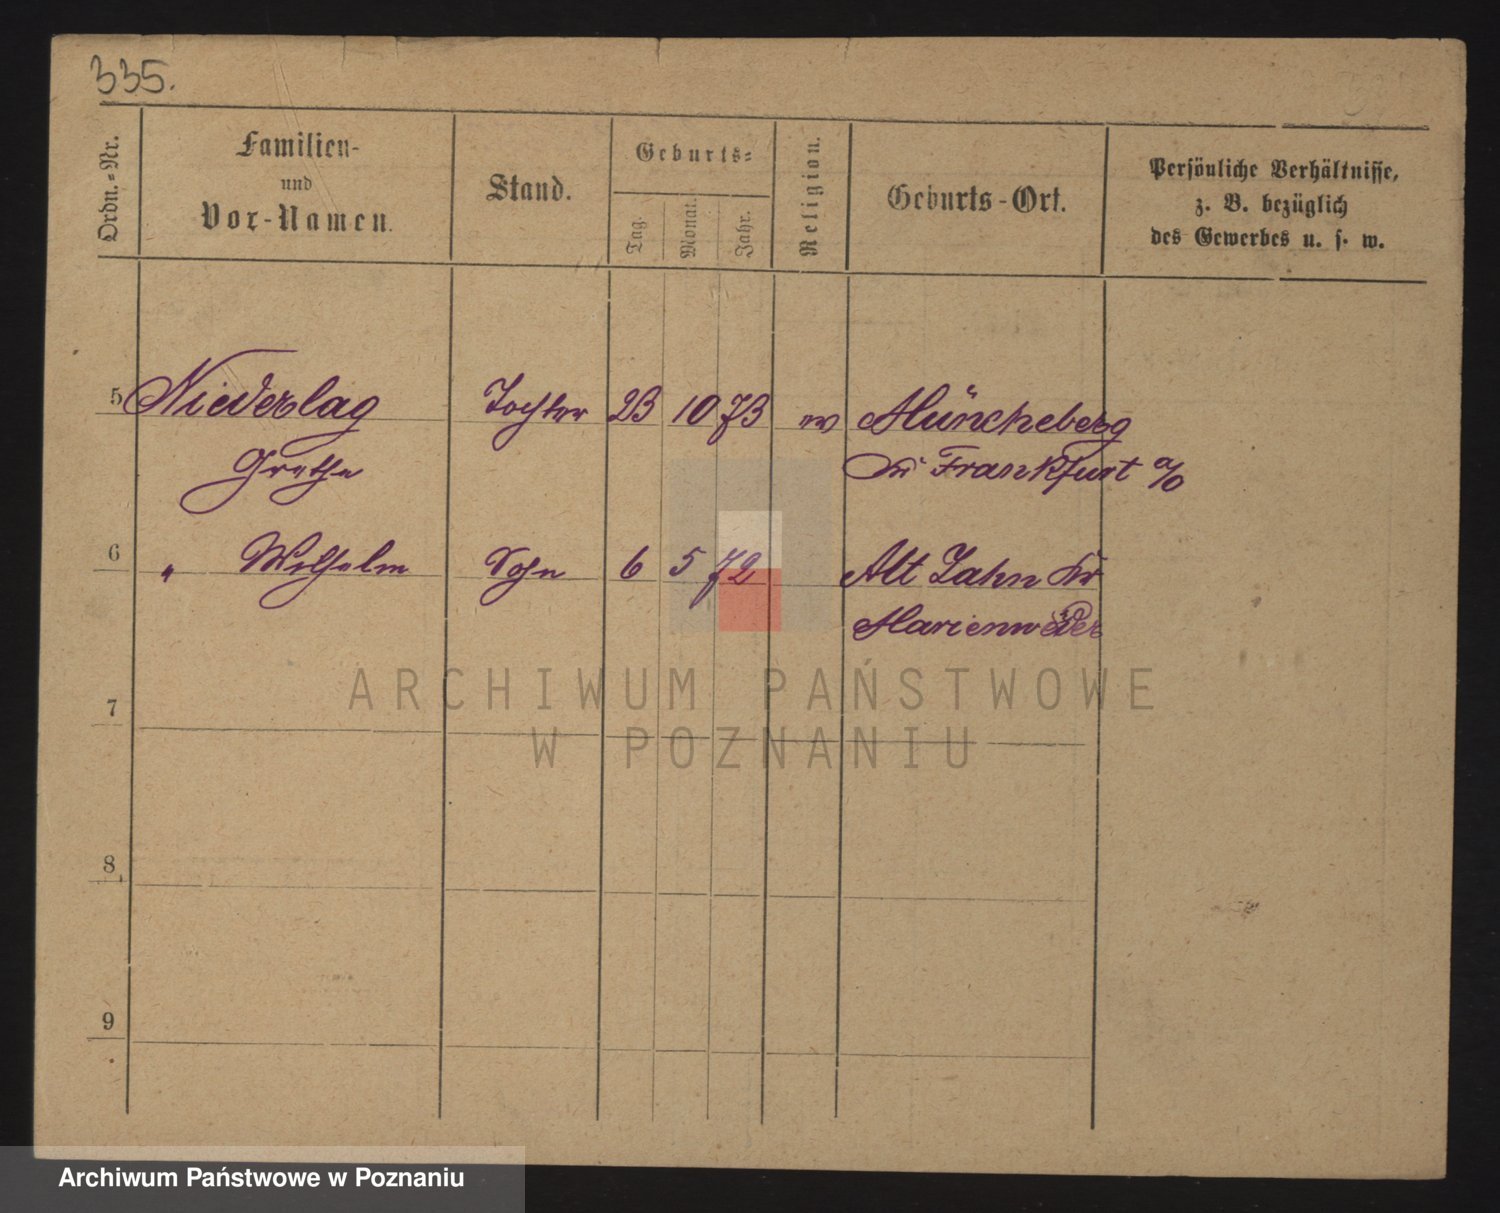 335.
Ordn.-Nr.
Familien-
und
Vor-Namen.
Stand.
Geburts-
Tag.
Monat.
Jahr.
Religion.
Geburts-Ort.
Persönliche Verhältnisse,
z. B. bezüglich
des Gewerbes u. s. w.
5 Niederlag Tochter 23 10 73 ev Müncheberg
Grethe Kr Frankfurt a/O
6 " Wilhelm Sohn 6 5 72 Alt Jahn Kr
Marienweder
7
8
9
ARCHIWUM PAŃSTWOWE
W POZNANIU
Archiwum Państwowe w Poznaniu